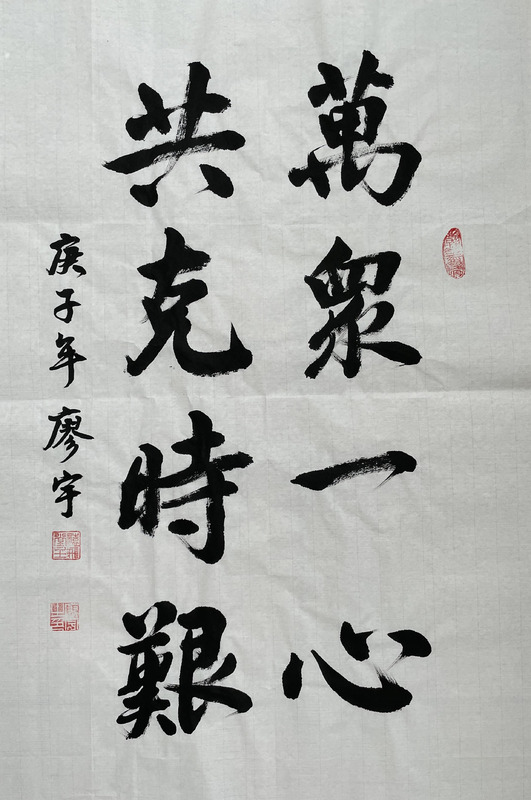 萬眾一心
共克時艱
庚子年 廖宇